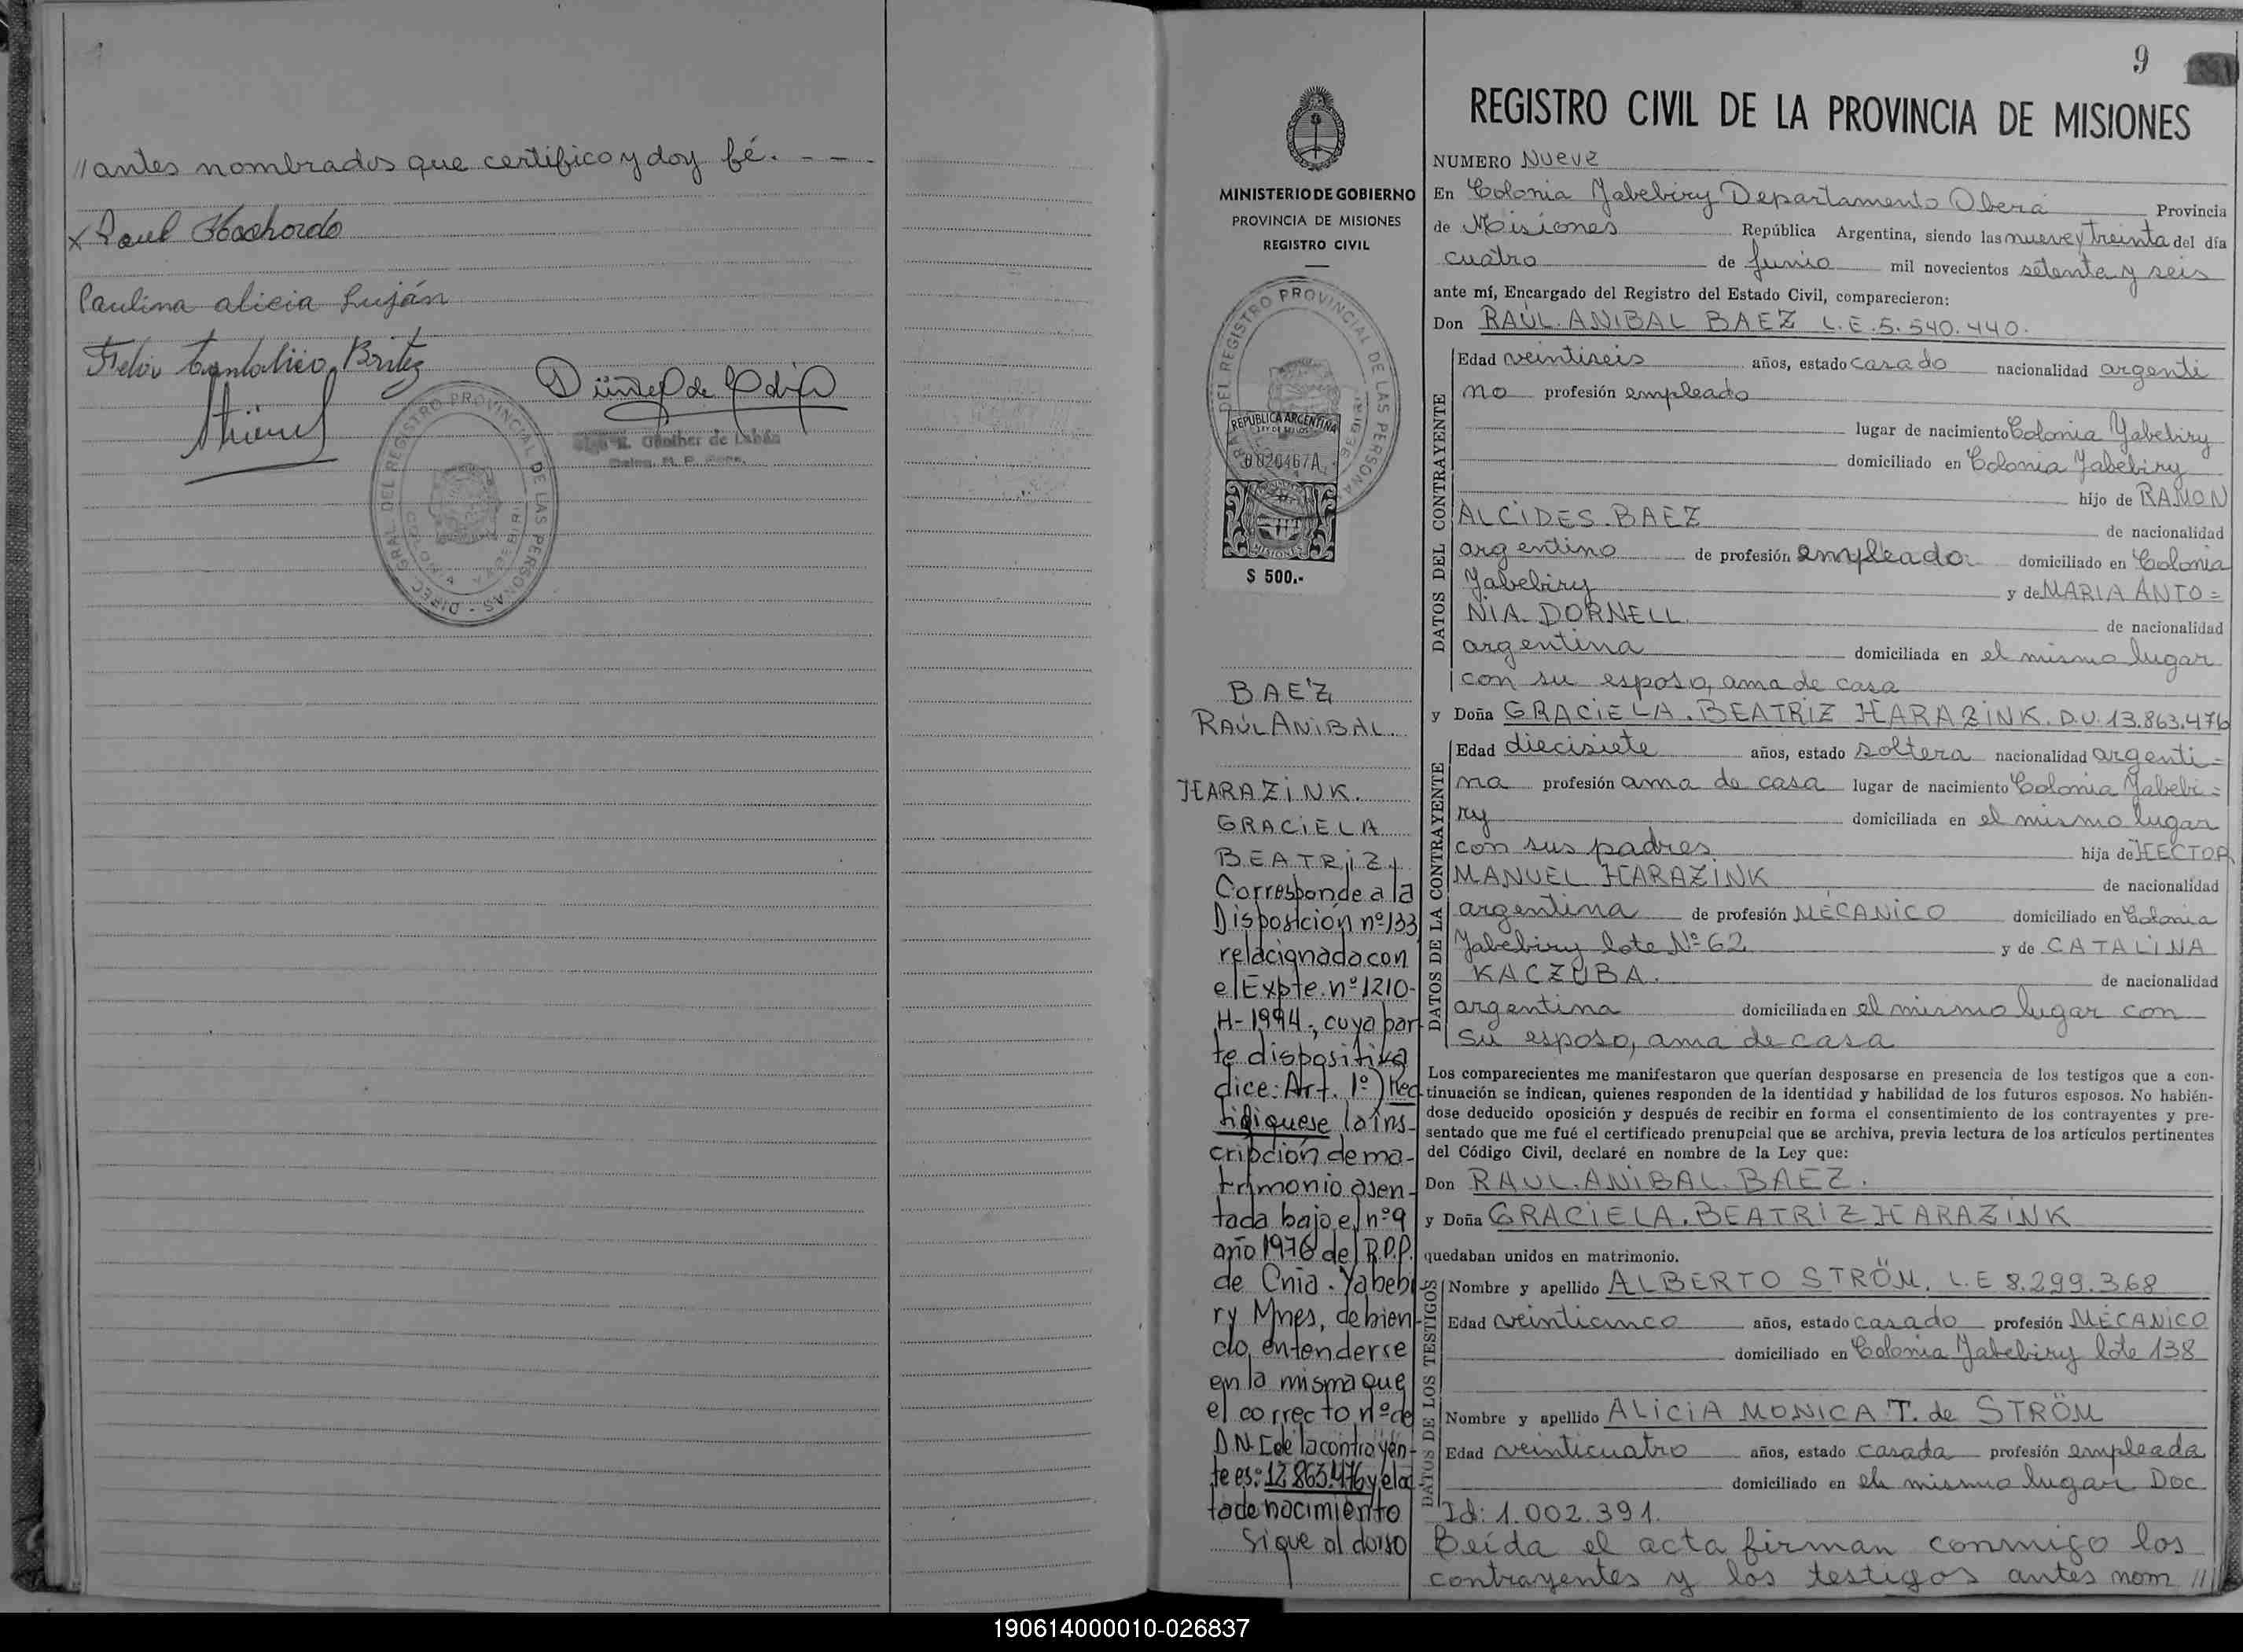 //antes nombrados que certifico y doy fé. - - -
Paulina alicia Luján
9
REGISTRO CIVIL DE LA PROVINCIA DE MISIONES
MINISTERIO DE GOBIERNO
PROVINCIA DE MISIONES
REGISTRO CIVIL
REPUBLICA ARGENTINA
$ 500.-
BAEZ
RAÚL ANIBAL
HARAZINK.
GRACIELA
BEATRIZ
Corresponde a la
Disposición nº 133
relacionada con
el Expte. nº 1210-
H-1994., cuya par
te dispositiva
dice: Art. 1º) Rec
tifiquese la ins-
cripción de ma-
trimonio asen-
tada bajo el nº 9
año 1976 del R.P.P.
de Cnia. Yabebi
ry Mnes, debien-
do, entenderse
en la misma que
el correcto nº de
D.N.I de la contrayen-
te es: 12.863.476 y el ac
ta de nacimiento
sigue al dorso
NUMERO Nueve
En Colonia Yabebiry Departamento Oberá Provincia
de Misiones República Argentina, siendo las nueve y treinta del día
cuatro de Junio mil novecientos setenta y seis
ante mí, Encargado del Registro del Estado Civil, comparecieron:
Don RAÚL. ANIBAL BAEZ L.E. 5.540.440.
DATOS DEL CONTRAYENTE
Edad veintiseis años, estado casado nacionalidad argenti
no profesión empleado
lugar de nacimiento Colonia Yabebiry
domiciliado en Colonia Yabebiry
hijo de RAMON
ALCIDES. BAEZ
de nacionalidad
argentino de profesión empleado domiciliado en Colonia
Yabebiry y de MARIA ANTO=
NIA. DORNELL
de nacionalidad
argentina domiciliada en el mismo lugar
con su esposo, ama de casa
y Doña GRACIELA. BEATRIZ HARAZINK. D.U. 13.863.476
DATOS DE LA CONTRAYENTE
Edad diecisiete años, estado soltera nacionalidad argenti=
na profesión ama de casa lugar de nacimiento Colonia Yabebi=
ry domiciliada en el mismo lugar
con sus padres hija de HECTOR
MANUEL HARAZINK de nacionalidad
argentina de profesión MECANICO domiciliado en Colonia
Yabebiry lote Nº 62 y de CATALINA
KACZUBA. de nacionalidad
argentina domiciliada en el mismo lugar con
su esposo, ama de casa
Los comparecientes me manifestaron que querían desposarse en presencia de los testigos que a con-
tinuación se indican, quienes responden de la identidad y habilidad de los futuros esposos. No habién-
dose deducido oposición y después de recibir en forma el consentimiento de los contrayentes y pre-
sentado que me fué el certificado prenupcial que se archiva, previa lectura de los artículos pertinentes
del Código Civil, declaré en nombre de la Ley que:
Don RAUL. ANIBAL. BAEZ.
y Doña GRACIELA. BEATRIZ HARAZINK
quedaban unidos en matrimonio.
DATOS DE LOS TESTIGOS
Nombre y apellido ALBERTO STRÖM. L.E 8.299.368
Edad veinticinco años, estado casado profesión MECANICO
domiciliado en Colonia Yabebiry lote 138
Nombre y apellido ALICIA MONICA T. de STRÖM
Edad veinticuatro años, estado casada profesión empleada
domiciliado en el mismo lugar Doc
Id: 1.002.391.
Leída el acta firman conmigo los
contrayentes y los testigos antes nom //
190614000010-026837